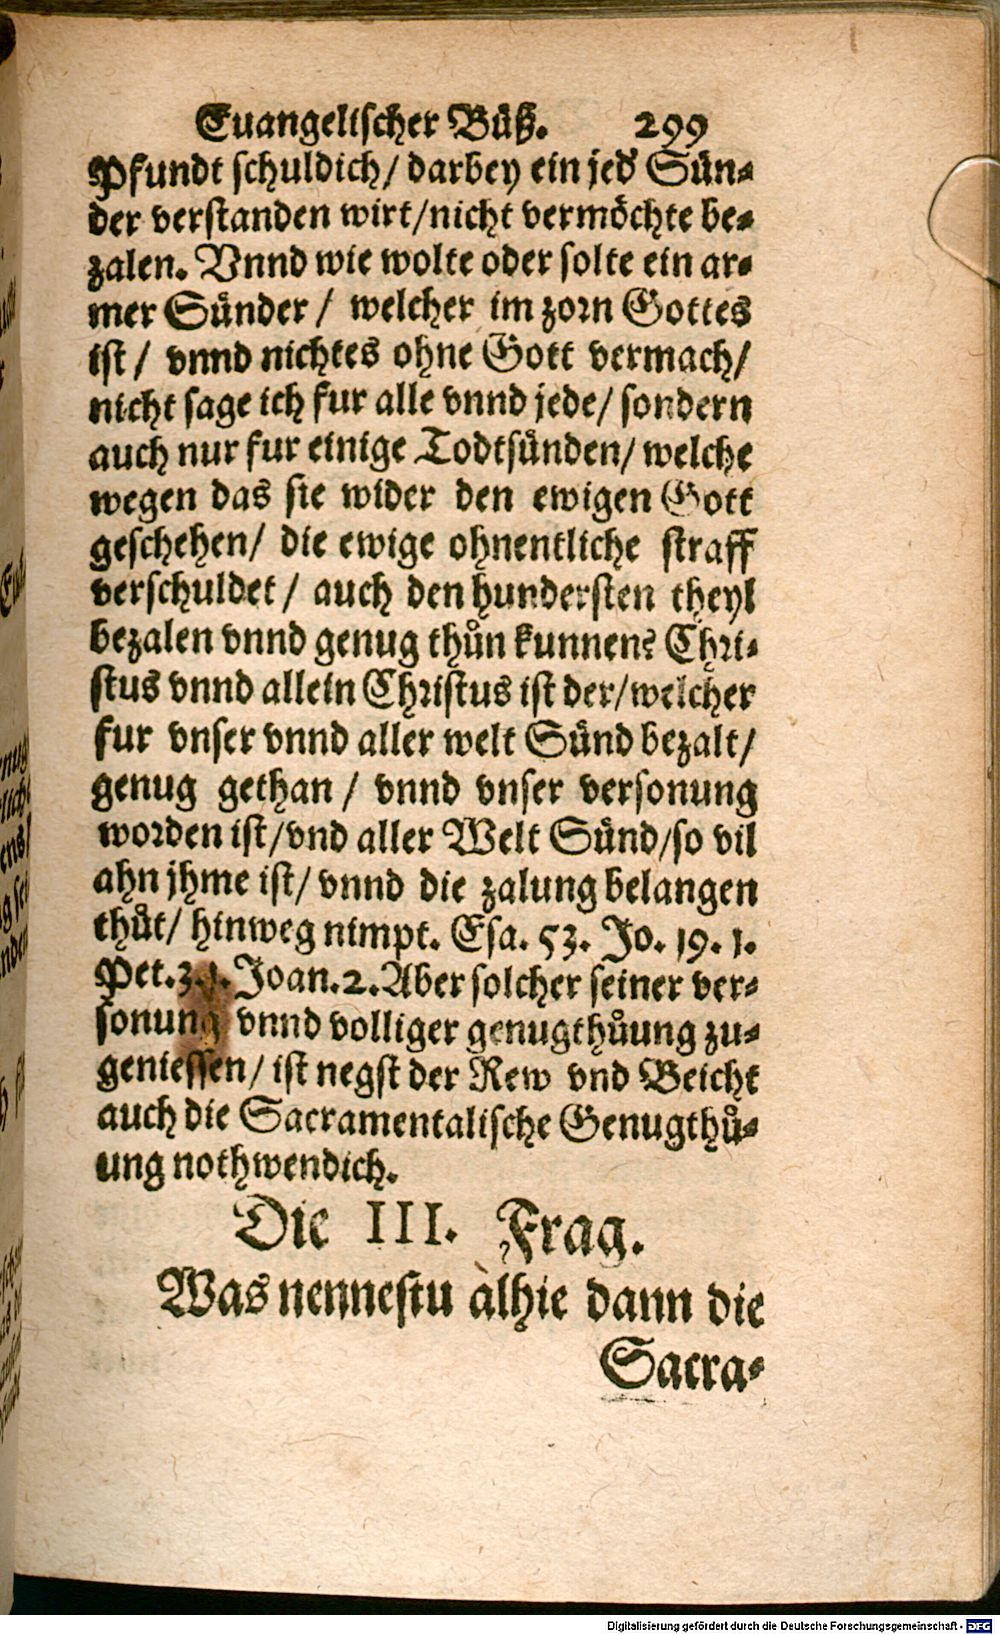 Euangelischer Büß. 299
Pfundt schuldich/ darbey ein jed' Sün-
der verstanden wirt/nicht vermöchte be-
zalen. Vnnd wie wolte oder solte ein ar-
mer Sünder / welcher im zorn Gottes
ist / vnnd nichtes ohne Gott vermach/
nicht sage ich fur alle vnnd jede/ sondern
auch nur fur einige Todtsünden/ welche
wegen das sie wider den ewigen Gott
geschehen/ die ewige ohnentliche straff
verschuldet / auch den hundersten theyl
bezalen vnnd genug thůn kunnen? Chri-
stus vnnd allein Christus ist der/welcher
fur vnser vnnd aller welt Sünd bezalt/
genug gethan / vnnd vnser versonung
worden ist/vnd aller Welt Sünd/so vil
ahn jhme ist/ vnnd die zalung belangen
thůt/ hinweg nimpt. Esa. 53. Jo. 19. 1.
Pet. 3. 1. Joan. 2. Aber solcher seiner ver-
sonung vnnd volliger genugthůung zu-
geniessen/ ist negst der Rew vnd Beicht
auch die Sacramentalische Genugthů-
ung nothwendich.
Die III. Frag.
Was nennestu àlhie dann die
Sacra-
Digitalisierung gefördert durch die Deutsche Forschungsgemeinschaft - DFG